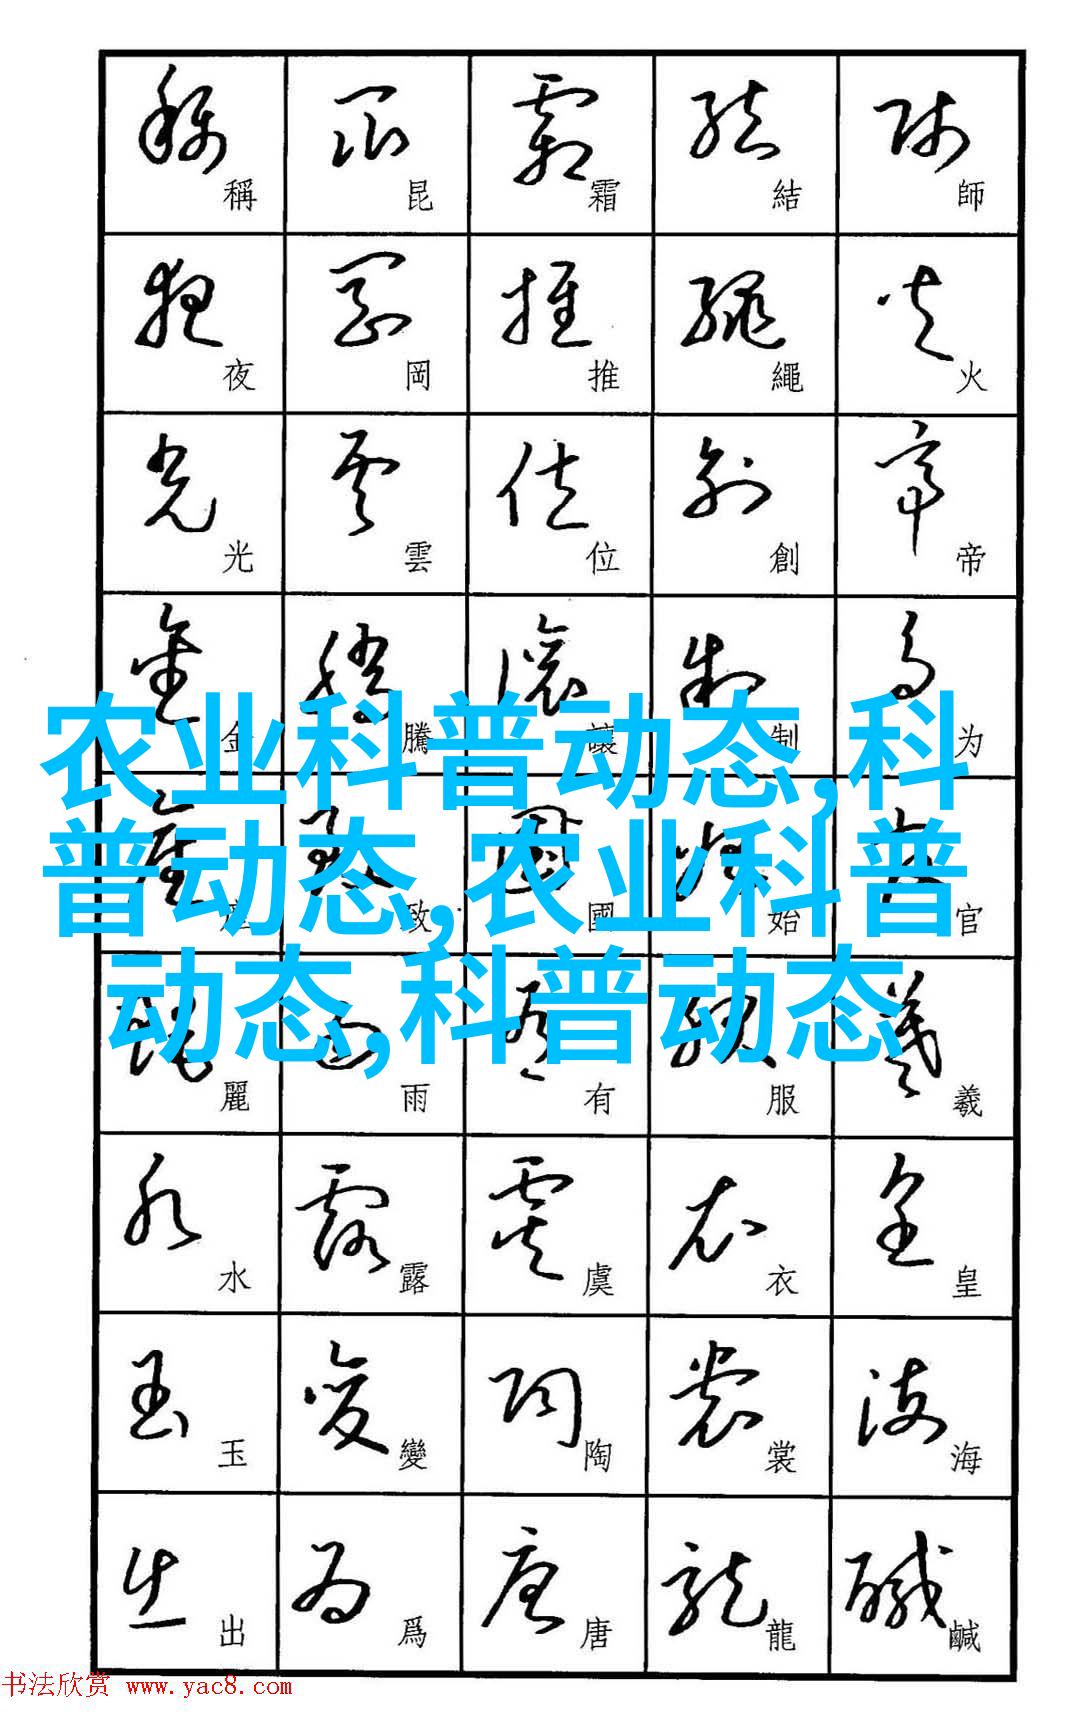 稱 昆 霜 結 師
夜 岡 推 繩 火
光 雲 位 創 帝
金 騰 讓 制 为
農业科普动态,科
普动态,农业科普
动态,科普动态
致 國 始 官
麗 雨 有 服 羲
水 露 虞 衣 皇
玉 變 陶 裳 海
出 爲 唐 龍 鹹
书法欣赏 www.yac8.com